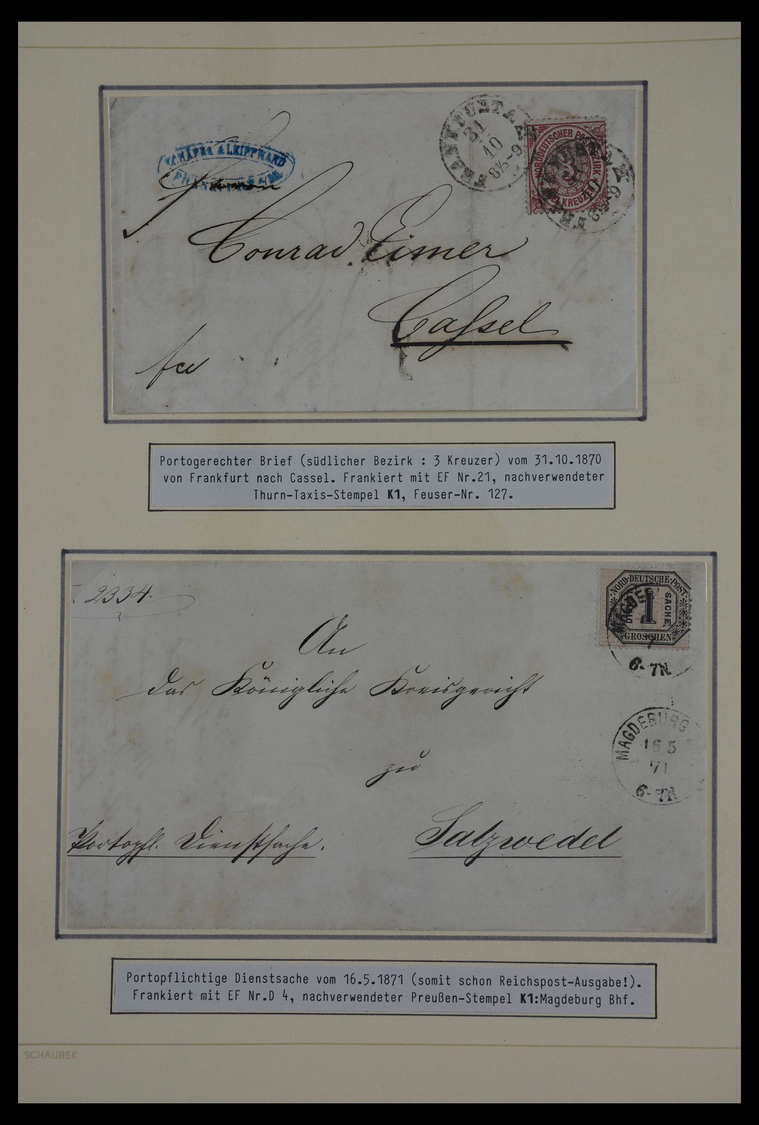 FRANKFURT A.M.
31
10
8½-9
NORDDEUTSCHER POSTBEZIRK
KREUZER
10
8½-9
Conrad Eimer
Cassel
fco
Portogerechter Brief (südlicher Bezirk : 3 Kreuzer) vom 31.10.1870
von Frankfurt nach Cassel. Frankiert mit EF Nr.21, nachverwendeter
Thurn-Taxis-Stempel K1, Feuser-Nr. 127.
2334.
NORD-DEUTSCHE-POST
1
SACHE
GROSCHEN
6-7N.
An
das Königliche Kreisgericht
zu
MAGDEBURG
16 5
71
6-7N
Portopfl. Dienstsache.
Salzwedel
Portopflichtige Dienstsache vom 16.5.1871 (somit schon Reichspost-Ausgabe!).
Frankiert mit EF Nr.D 4, nachverwendeter Preußen-Stempel K1:Magdeburg Bhf.
SCHAUBEK